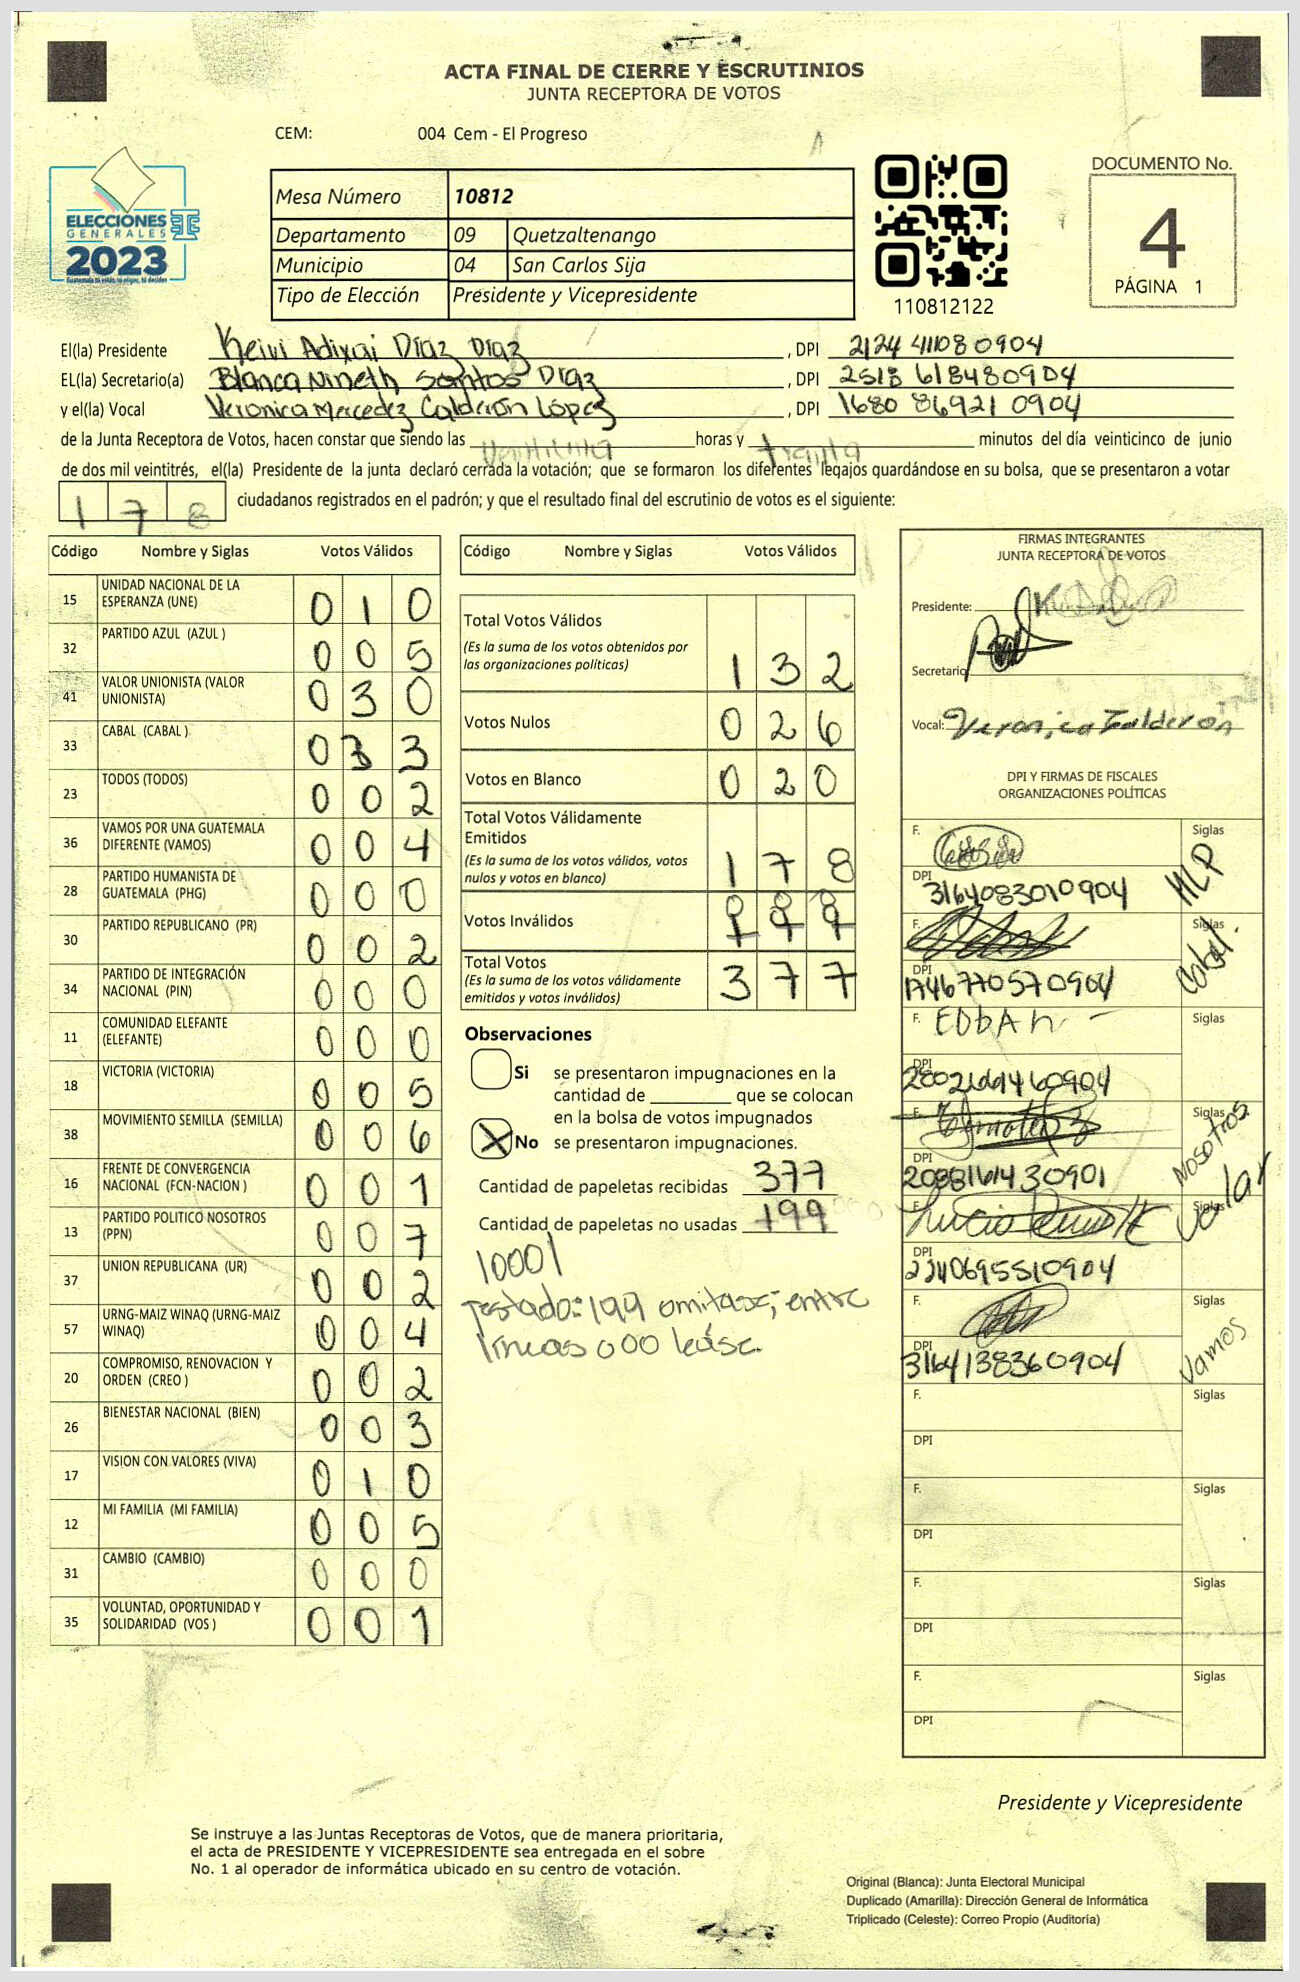 ACTA FINAL DE CIERRE Y ESCRUTINIOS
JUNTA RECEPTORA DE VOTOS
CEM: 004 Cem - El Progreso
ELECCIONES
GENERALES
2023
Mesa Número 10812
Departamento 09 Quetzaltenango
Municipio 04 San Carlos Sija
Tipo de Elección Presidente y Vicepresidente
110812122
DOCUMENTO No.
4
PÁGINA 1
El(la) Presidente Keivi Adixai Díaz Díaz , DPI 2124 41108 0904
EL(la) Secretario(a) Blanca Nineth Santos Díaz , DPI 2518 61848 0904
y el(la) Vocal Veronica Mercedez Calderón López , DPI 1680 86921 0904
de la Junta Receptora de Votos, hacen constar que siendo las horas y treinta minutos del día veinticinco de junio
de dos mil veintitrés, el(la) Presidente de la junta declaró cerrada la votación; que se formaron los diferentes legajos quardándose en su bolsa, que se presentaron a votar
1 7 8 ciudadanos registrados en el padrón; y que el resultado final del escrutinio de votos es el siguiente:
Código Nombre y Siglas Votos Válidos
15 UNIDAD NACIONAL DE LA ESPERANZA (UNE) 0 1 0
32 PARTIDO AZUL (AZUL ) 0 0 5
41 VALOR UNIONISTA (VALOR UNIONISTA) 0 3 0
33 CABAL (CABAL ) 0 3 3
23 TODOS (TODOS) 0 0 2
36 VAMOS POR UNA GUATEMALA DIFERENTE (VAMOS) 0 0 4
28 PARTIDO HUMANISTA DE GUATEMALA (PHG) 0 0 0
30 PARTIDO REPUBLICANO (PR) 0 0 2
34 PARTIDO DE INTEGRACIÓN NACIONAL (PIN) 0 0 0
11 COMUNIDAD ELEFANTE (ELEFANTE) 0 0 0
18 VICTORIA (VICTORIA) 0 0 5
38 MOVIMIENTO SEMILLA (SEMILLA) 0 0 6
16 FRENTE DE CONVERGENCIA NACIONAL (FCN-NACION ) 0 0 1
13 PARTIDO POLITICO NOSOTROS (PPN) 0 0 7
37 UNION REPUBLICANA (UR) 0 0 2
57 URNG-MAIZ WINAQ (URNG-MAIZ WINAQ) 0 0 4
20 COMPROMISO, RENOVACION Y ORDEN (CREO ) 0 0 2
26 BIENESTAR NACIONAL (BIEN) 0 0 3
17 VISION CON VALORES (VIVA) 0 1 0
12 MI FAMILIA (MI FAMILIA) 0 0 5
31 CAMBIO (CAMBIO) 0 0 0
35 VOLUNTAD, OPORTUNIDAD Y SOLIDARIDAD (VOS ) 0 0 1
Código Nombre y Siglas Votos Válidos
Total Votos Válidos 1 3 2
(Es la suma de los votos obtenidos por
las organizaciones políticas)
Votos Nulos 0 2 6
Votos en Blanco 0 2 0
Total Votos Válidamente
Emitidos 1 7 8
(Es la suma de los votos válidos, votos
nulos y votos en blanco)
Votos Inválidos 0 0 0
Total Votos 3 7 7
(Es la suma de los votos válidamente
emitidos y votos inválidos)
Observaciones
Si se presentaron impugnaciones en la
cantidad de ________ que se colocan
en la bolsa de votos impugnados
No se presentaron impugnaciones.
Cantidad de papeletas recibidas 377
Cantidad de papeletas no usadas 199
10001
Testado: 199 omitase; entre
líneas 000 léase.
FIRMAS INTEGRANTES
JUNTA RECEPTORA DE VOTOS
Presidente:
Secretario
Vocal: Veronica Calderon
DPI Y FIRMAS DE FISCALES
ORGANIZACIONES POLÍTICAS
F. Siglas MLP
DPI 3164083010904
F. Siglas Cabal.
DPI 1746770570904
F. Siglas
DPI
F. Siglas Nosotros
DPI 2088161430901
F. Siglas Valor
DPI 2240695510904
F. Siglas Vamos
DPI 3164138360904
F. Siglas
DPI
F. Siglas
DPI
F. Siglas
DPI
F. Siglas
DPI
Presidente y Vicepresidente
Se instruye a las Juntas Receptoras de Votos, que de manera prioritaria,
el acta de PRESIDENTE Y VICEPRESIDENTE sea entregada en el sobre
No. 1 al operador de informática ubicado en su centro de votación.
Original (Blanca): Junta Electoral Municipal
Duplicado (Amarilla): Dirección General de Informática
Triplicado (Celeste): Correo Propio (Auditoría)